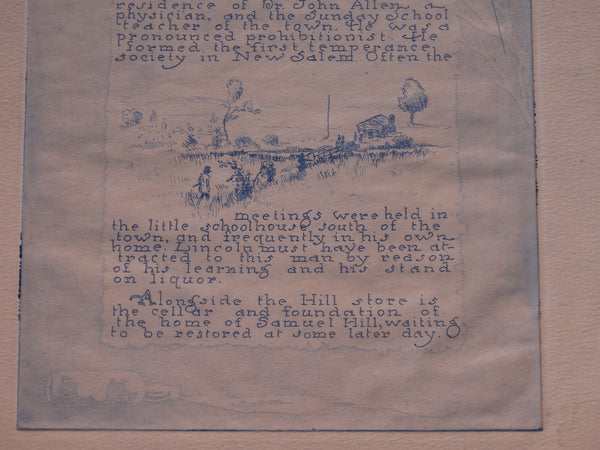 residence of Dr. John Allen, a
physician, and the Sunday School
teacher of the town. He was a
pronounced prohibitionist. He
formed the first temperance
society in New Salem. Often the
meetings were held in
the little schoolhouse south of the
town, and frequently in his own
home. Lincoln must have been at-
tracted to this man by reason
of his learning and his stand
on liquor.
Alongside the Hill store is
the cellar and foundation of
the home of Samuel Hill, waiting
to be restored at some later day.